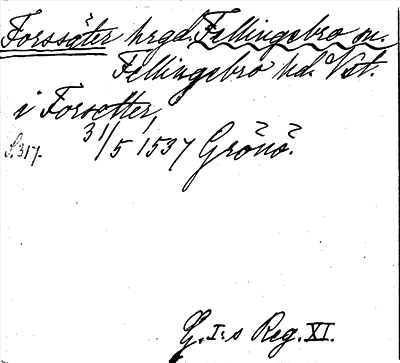 Forssäter hrgd. Fellingsbro sn.
Fellingsbro hd. Vst.
i Forsetter
31/5 1537 Grönö.
S. 317.
G. I:s Reg. XI.